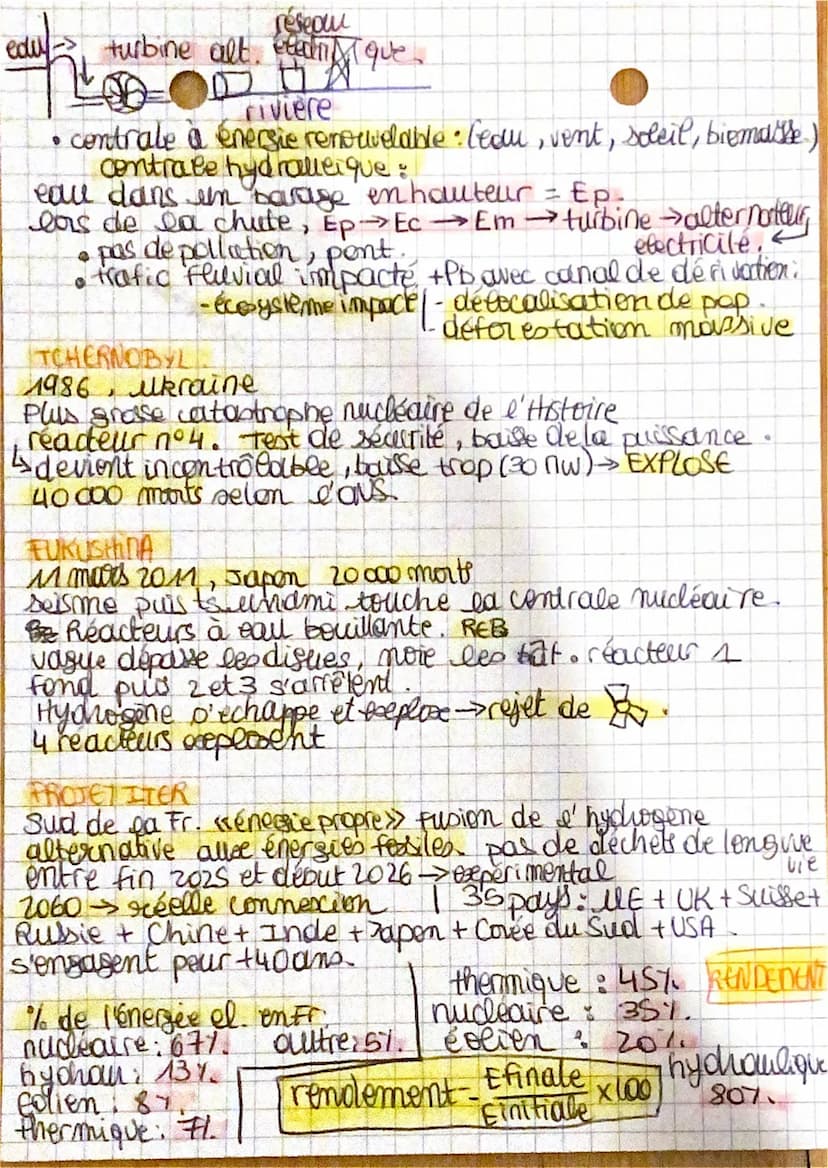 réseau
eau → turbine alt. électrique.
rivière
• centrale à énergie renouvelable : (eau, vent, soleil, biomasse)
centrale hydraulique :
eau dans un barage en hauteur = Ep.
lors de la chute, Ep → Ec → Em → turbine → alternateur
électricité. ↵
• pas de pollution, pont.
• trafic fluvial impacté + Pb avec canal de dérivation :
- écosystème impacté | - délocalisation de pop.
- déforestation massive
TCHERNOBYL
1986, Ukraine
Plus grosse catastrophe nucléaire de l'Histoire
réacteur n°4. Test de sécurité, baisse de la puissance.
↳ devient incontrôlable, baisse trop (30 MW) → EXPLOSE
40 000 morts selon l'
FUKUSHIMA
11 mars 2011, Japon 20 000 morts
seisme puis tsunami touche la centrale nucléaire.
Réacteurs à eau bouillante. REB
vague dépasse les digues, noie les bât. réacteur 1
fond puis 2 et 3 s'arrêtent.
Hydrogène s'échappe et explose → rejet de
4 réacteurs explosent
PROJET ITER
Sud de la Fr. «énergie propre» fusion de l'hydrogène
alternative aux énergies fossiles. pas de déchets de longue vie
entre fin 2025 et début 2026 → expérimental
2060 → réelle connexion | 35 pays : UE + UK + Suisse +
Russie + Chine + Inde + Japon + Corée du Sud + USA.
s'engagent pour +40 ans.
thermique : 45% RENDEMENT
nucléaire : 35%.
éolien : 20%.
hydraulique
80%.
% de l'énergie el. en Fr
nucléaire : 67% autre : 5%.
hydrau : 13%.
Éolien : 8%.
thermique : 7%.
rendement = Efinale / Einitiale × 100